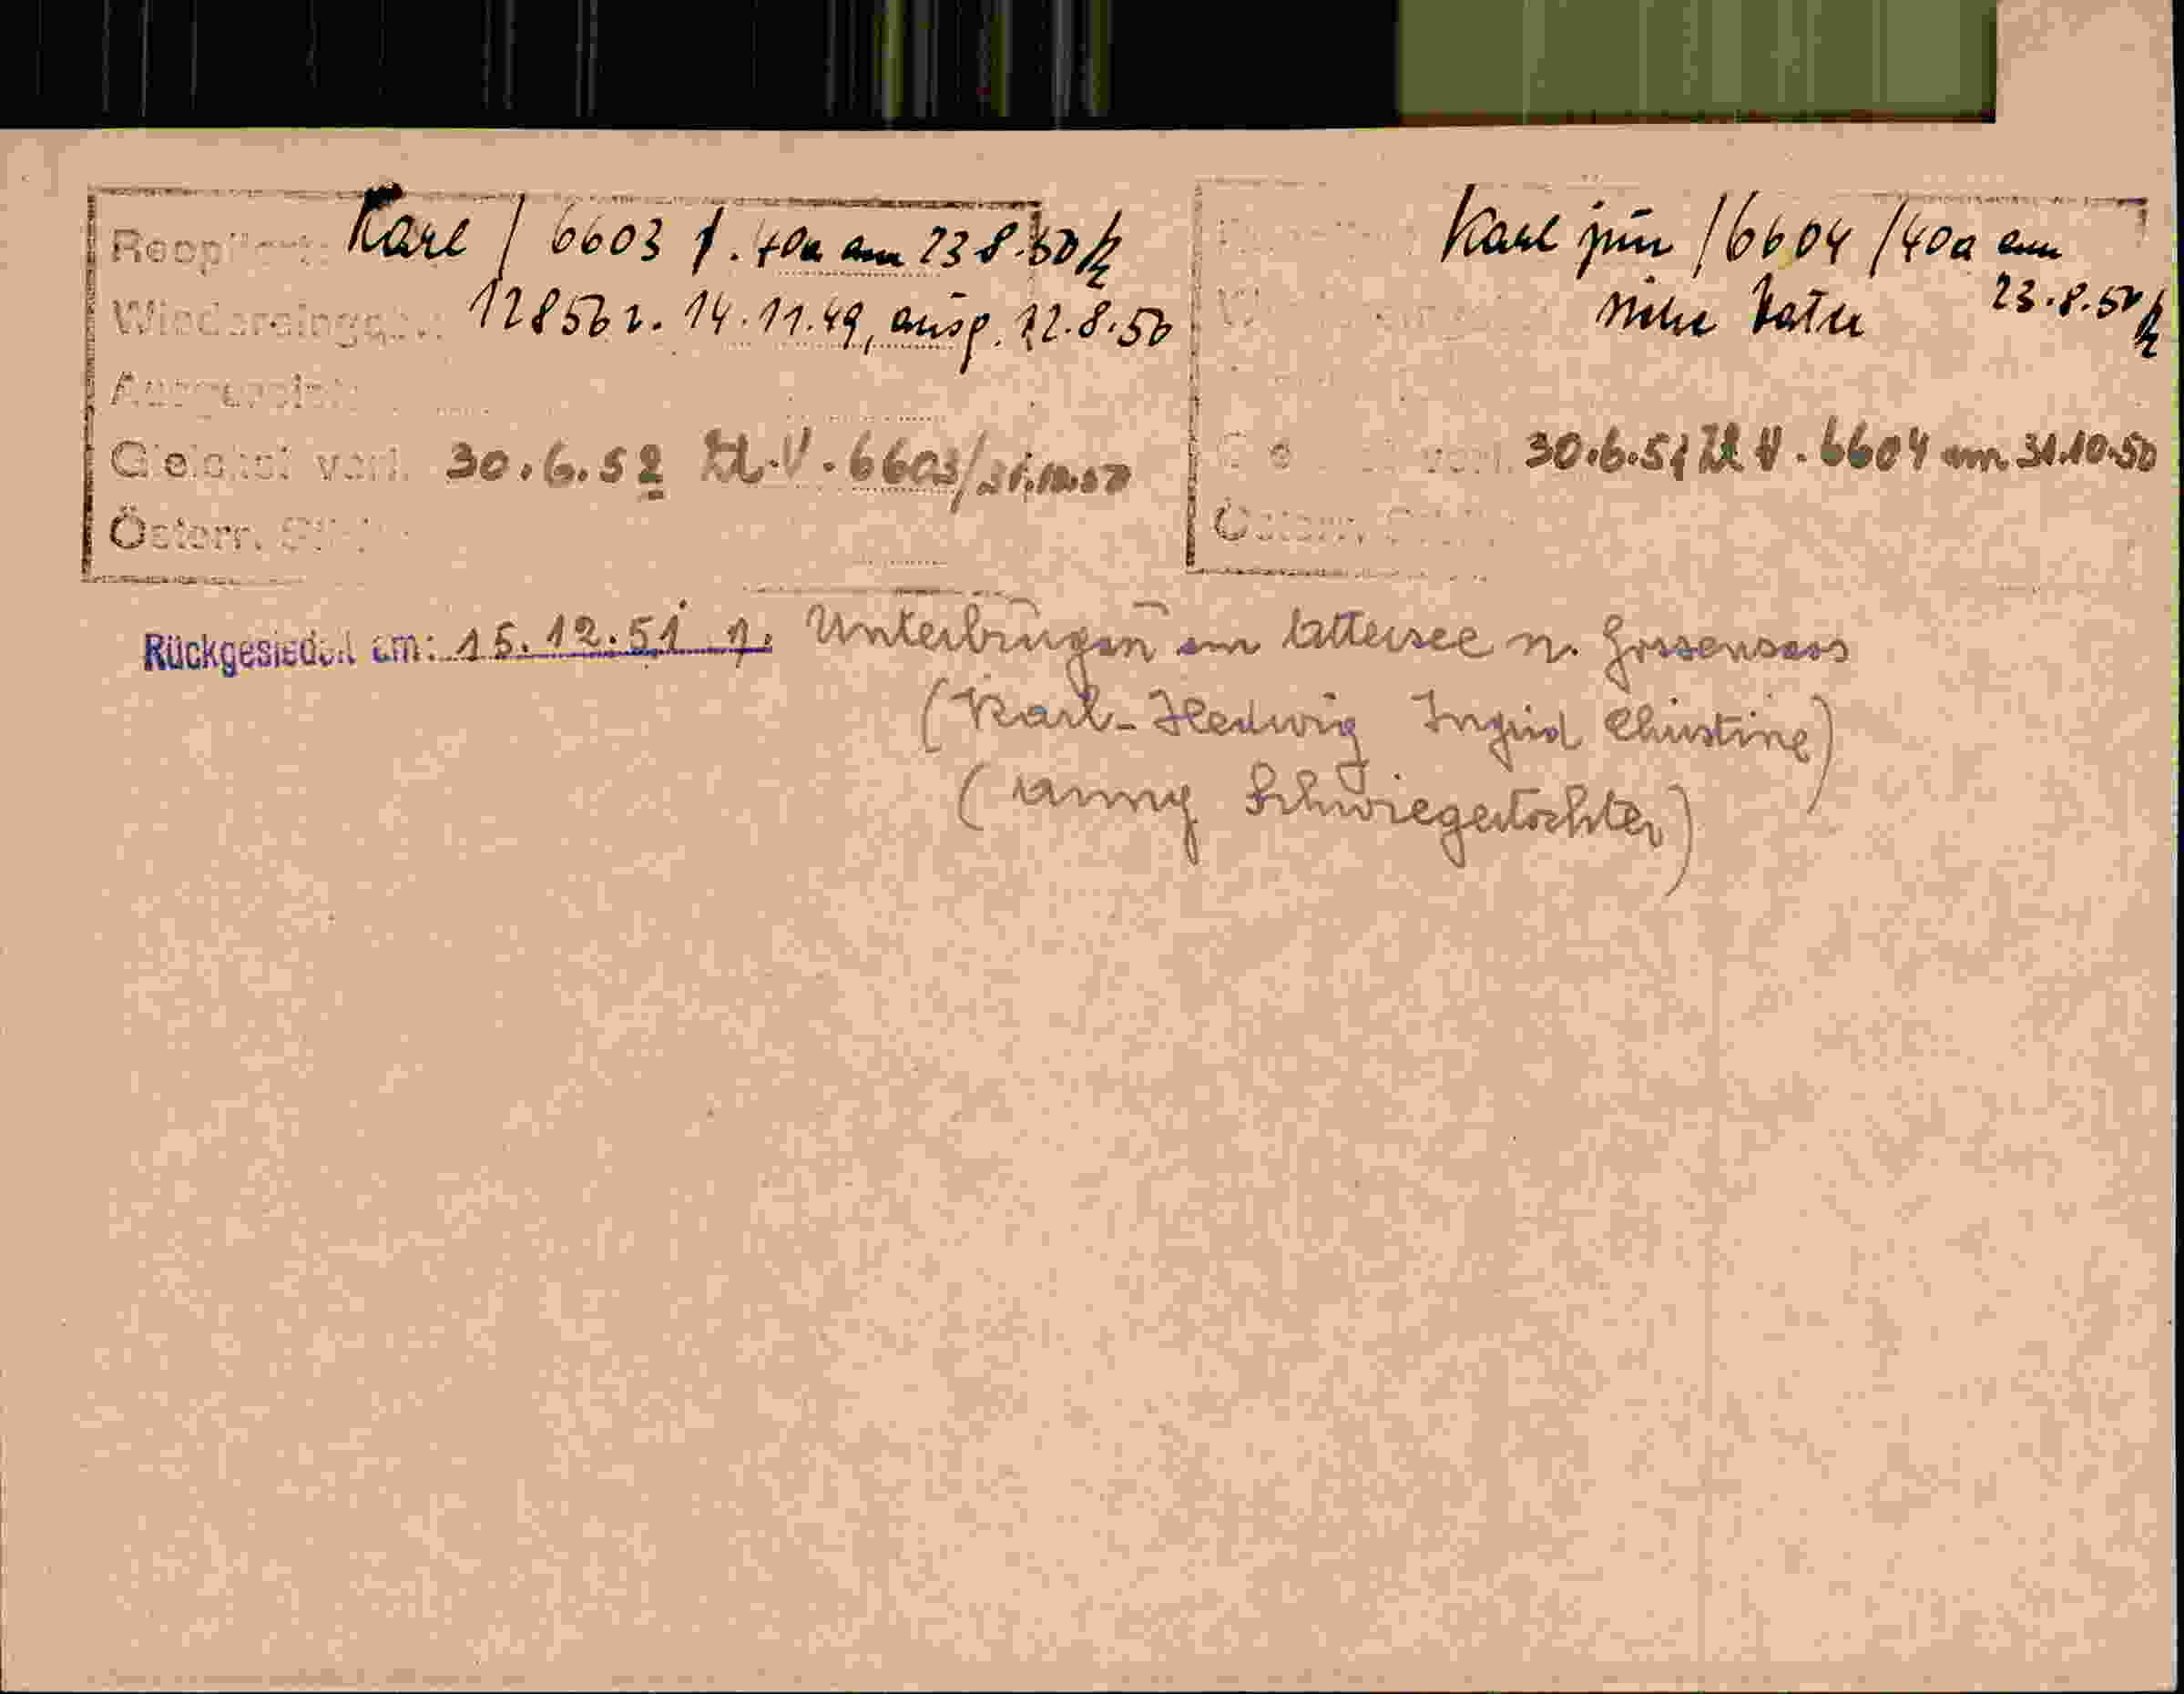 Reoptiert: Karl / 6603 f. 40a am 23.8.50
Wiedereingeb. 12856 v. 14.11.49, ausg. 22.8.50
Ausgereist:
Gleichst. verl. 30.6.52 Zl. V. 6603/31.10.50
Österr. St.
Karl jun / 6604 / 40a am
siehe Vater 23.8.50
Gleichst. verl. 30.6.51 Zl V. 6604 am 31.10.50
Österr. St.
Rückgesiedelt am: 15.12.51 v. Unter am Attersee n. Gossensass
(Karl-Hedwig Ingrid Christine)
(Anny Schwiegertochter)